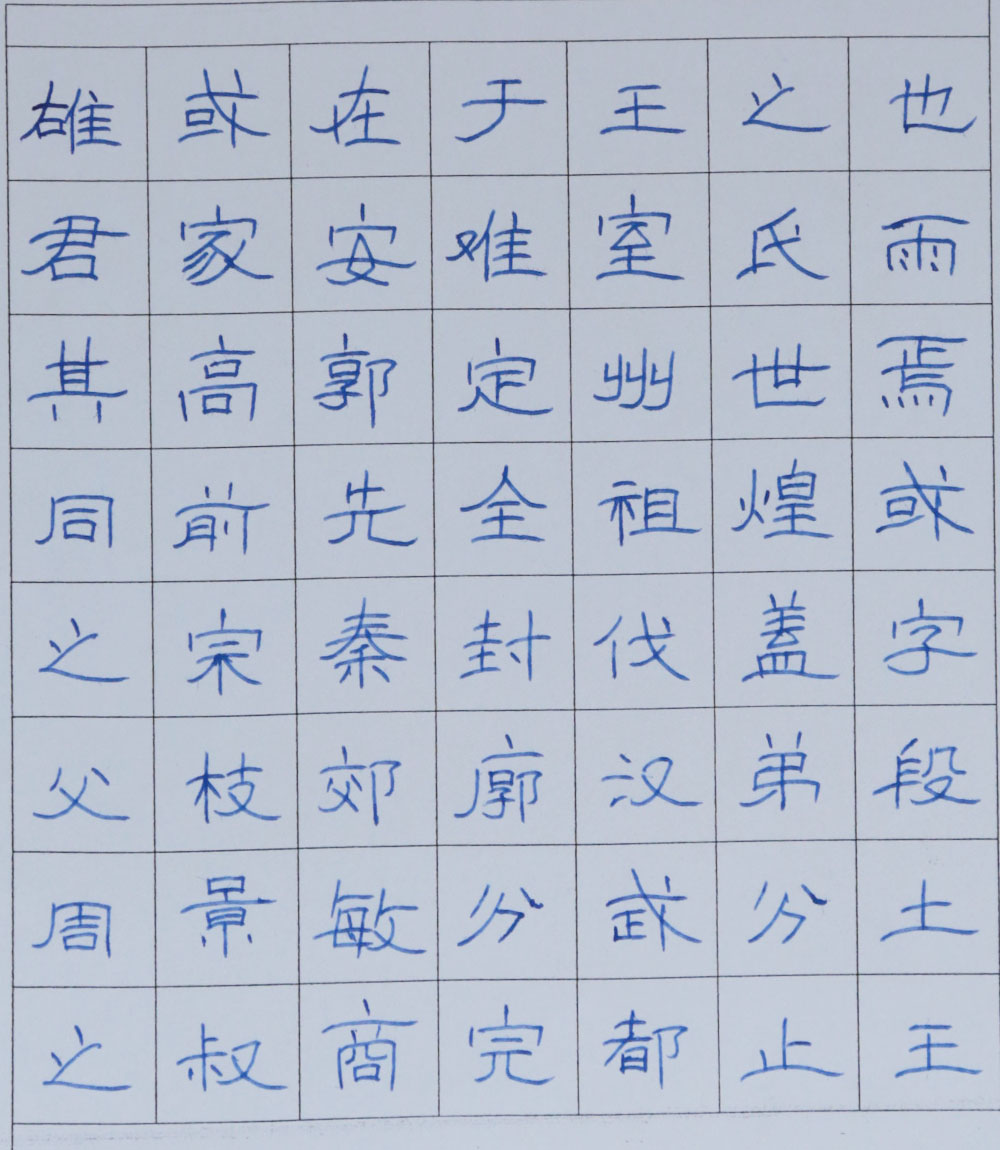 也雨焉或字段土王
之氏世煌盖弟分止
王室州祖伐汉武都
于难定全封廓分完
在安郭先秦郊敏商
或家高前宗枝景叔
雄君其同之父周之